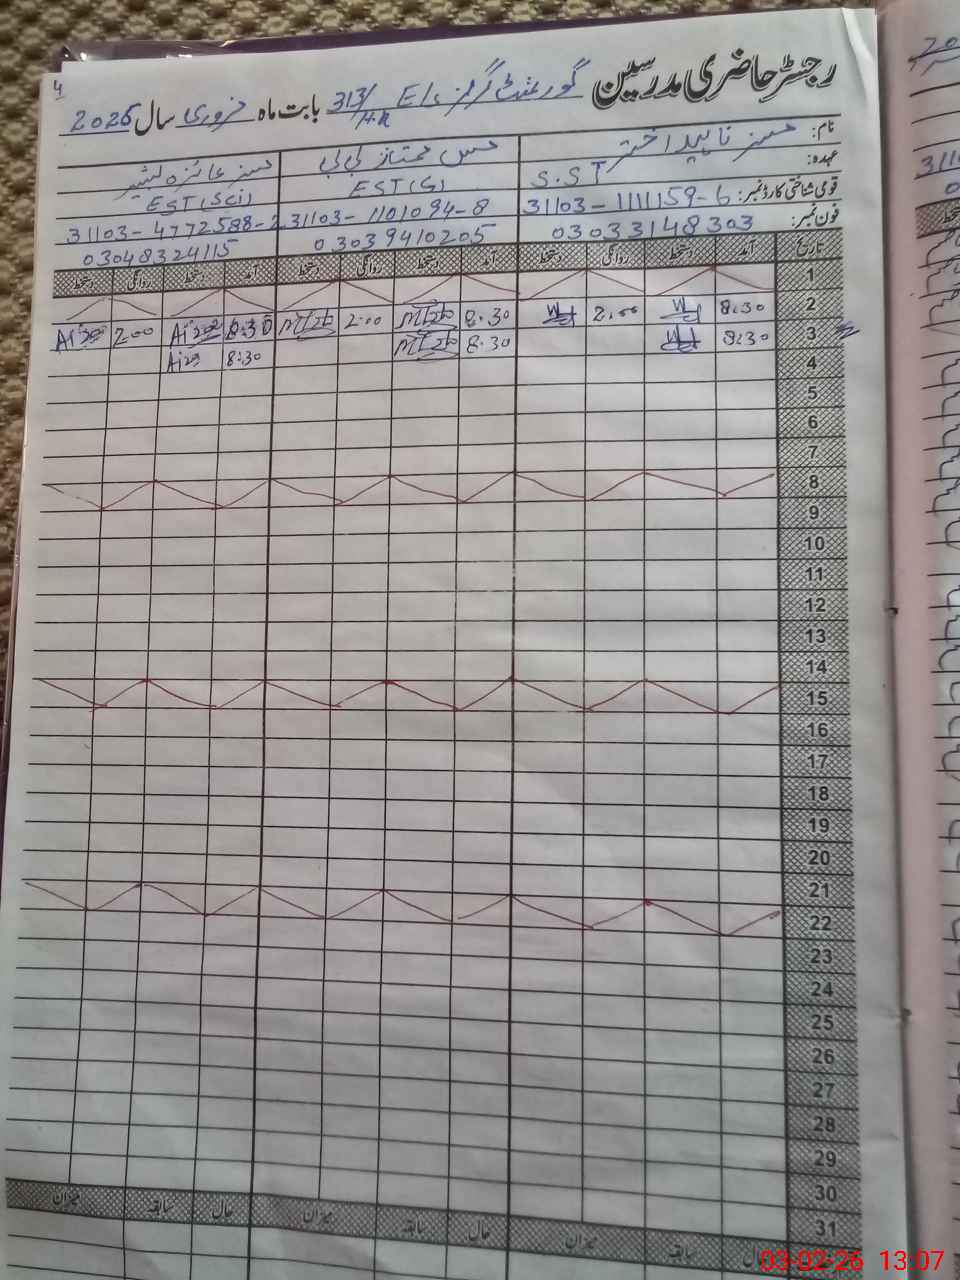 رجسٹر حاضری مدرسین گورنمنٹ گرلز E/S 313/H.R بابت ماہ فروری سال 2026
نام: مسز ناہید اختر مس ممتاز بی بی مسز عائزہ
عہدہ: S.ST EST(G) EST(Sci)
قومی شناختی کارڈ نمبر: 31103-1111159-6 31103-1101094-8 31103-4772588-2
فون نمبر: 03033148303 03039410205 03048324115
تاریخ آمد دستخط روانگی دستخط آمد دستخط روانگی دستخط آمد دستخط روانگی دستخط
1
2 8:30 2:00 8:30 2:00 8:30 2:00
3 8:30 8:30 8:30
4
5
6
7
8
9
10
11
12
13
14
15
16
17
18
19
20
21
22
23
24
25
26
27
28
29
30
31
حال سابقہ میزان حال سابقہ میزان حال سابقہ میزان
03-02-26 13:07